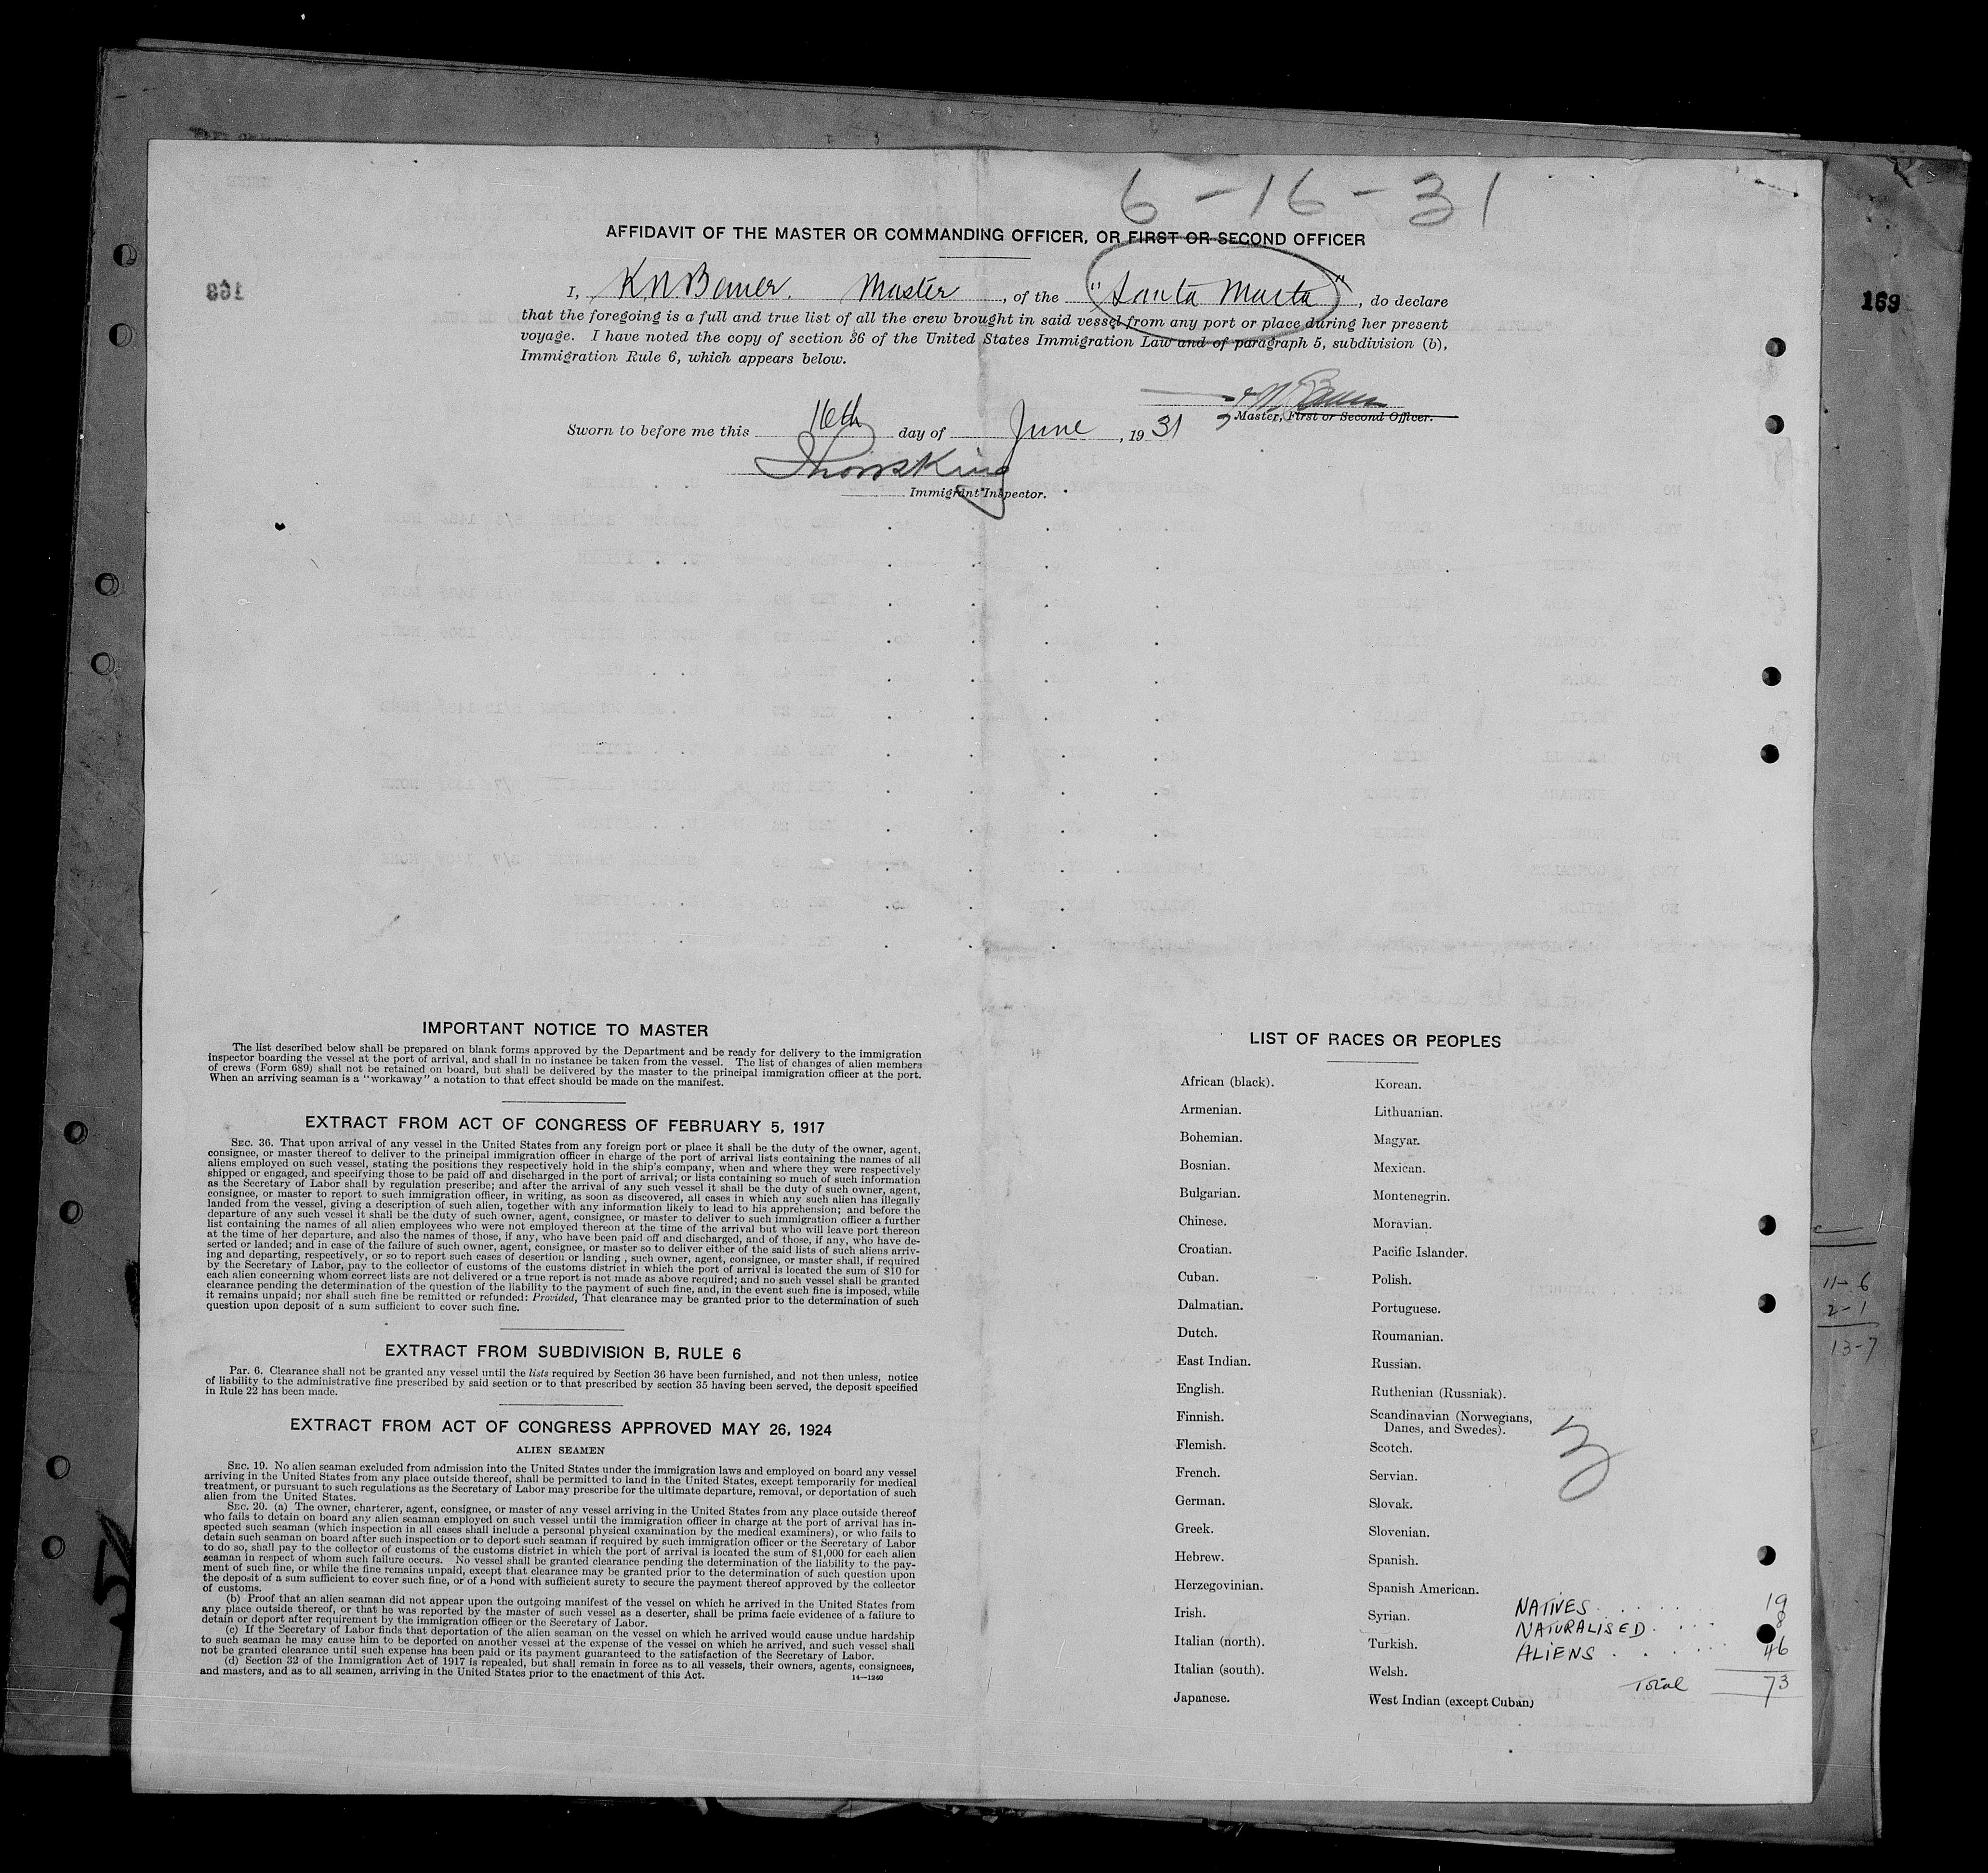 6-16-31
AFFIDAVIT OF THE MASTER OR COMMANDING OFFICER, OR FIRST OR SECOND OFFICER
169
I, K.N. Bauer. Master, of the "Santa Marta", do declare
that the foregoing is a full and true list of all the crew brought in said vessel from any port or place during her present
voyage. I have noted the copy of section 36 of the United States Immigration Law and of paragraph 5, subdivision (b),
Immigration Rule 6, which appears below.
Master, First or Second Officer.
Sworn to before me this 16th day of June, 1931
Immigrant Inspector.
IMPORTANT NOTICE TO MASTER
The list described below shall be prepared on blank forms approved by the Department and be ready for delivery to the immigration
inspector boarding the vessel at the port of arrival, and shall in no instance be taken from the vessel. The list of changes of alien members
of crews (Form 689) shall not be retained on board, but shall be delivered by the master to the principal immigration officer at the port.
When an arriving seaman is a "workaway" a notation to that effect should be made on the manifest.
EXTRACT FROM ACT OF CONGRESS OF FEBRUARY 5, 1917
SEC. 36. That upon arrival of any vessel in the United States from any foreign port or place it shall be the duty of the owner, agent,
consignee, or master thereof to deliver to the principal immigration officer in charge of the port of arrival lists containing the names of all
aliens employed on such vessel, stating the positions they respectively hold in the ship's company, when and where they were respectively
shipped or engaged, and specifying those to be paid off and discharged in the port of arrival; or lists containing so much of such information
as the Secretary of Labor shall by regulation prescribe; and after the arrival of any such vessel it shall be the duty of such owner, agent,
consignee, or master to report to such immigration officer, in writing, as soon as discovered, all cases in which any such alien has illegally
landed from the vessel, giving a description of such alien, together with any information likely to lead to his apprehension; and before the
departure of any such vessel it shall be the duty of such owner, agent, consignee, or master to deliver to such immigration officer a further
list containing the names of all alien employees who were not employed thereon at the time of the arrival but who will leave port thereon
at the time of her departure, and also the names of those, if any, who have been paid off and discharged, and of those, if any, who have de-
serted or landed; and in case of the failure of such owner, agent, consignee, or master so to deliver either of the said lists of such aliens arriv-
ing and departing, respectively, or so to report such cases of desertion or landing, such owner, agent, consignee, or master shall, if required
by the Secretary of Labor, pay to the collector of customs of the customs district in which the port of arrival is located the sum of $10 for
each alien concerning whom correct lists are not delivered or a true report is not made as above required; and no such vessel shall be granted
clearance pending the determination of the question of the liability to the payment of such fine, and, in the event such fine is imposed, while
it remains unpaid; nor shall such fine be remitted or refunded: Provided, That clearance may be granted prior to the determination of such
question upon deposit of a sum sufficient to cover such fine.
EXTRACT FROM SUBDIVISION B, RULE 6
Par. 6. Clearance shall not be granted any vessel until the lists required by Section 36 have been furnished, and not then unless, notice
of liability to the administrative fine prescribed by said section or to that prescribed by section 35 having been served, the deposit specified
in Rule 22 has been made.
EXTRACT FROM ACT OF CONGRESS APPROVED MAY 26, 1924
ALIEN SEAMEN
SEC. 19. No alien seaman excluded from admission into the United States under the immigration laws and employed on board any vessel
arriving in the United States from any place outside thereof, shall be permitted to land in the United States, except temporarily for medical
treatment, or pursuant to such regulations as the Secretary of Labor may prescribe for the ultimate departure, removal, or deportation of such
alien from the United States.
SEC. 20. (a) The owner, charterer, agent, consignee, or master of any vessel arriving in the United States from any place outside thereof
who fails to detain on board any alien seaman employed on such vessel until the immigration officer in charge at the port of arrival has in-
spected such seaman (which inspection in all cases shall include a personal physical examination by the medical examiners), or who fails to
detain such seaman on board after such inspection or to deport such seaman if required by such immigration officer or the Secretary of Labor
to do so, shall pay to the collector of customs of the customs district in which the port of arrival is located the sum of $1,000 for each alien
seaman in respect of whom such failure occurs. No vessel shall be granted clearance pending the determination of the liability to the pay-
ment of such fine, or while the fine remains unpaid, except that clearance may be granted prior to the determination of such question upon
the deposit of a sum sufficient to cover such fine, or of a bond with sufficient surety to secure the payment thereof approved by the collector
of customs.
(b) Proof that an alien seaman did not appear upon the outgoing manifest of the vessel on which he arrived in the United States from
any place outside thereof, or that he was reported by the master of such vessel as a deserter, shall be prima facie evidence of a failure to
detain or deport after requirement by the immigration officer or the Secretary of Labor.
(c) If the Secretary of Labor finds that deportation of the alien seaman on the vessel on which he arrived would cause undue hardship
to such seaman he may cause him to be deported on another vessel at the expense of the vessel on which he arrived, and such vessel shall
not be granted clearance until such expense has been paid or its payment guaranteed to the satisfaction of the Secretary of Labor.
(d) Section 32 of the Immigration Act of 1917 is repealed, but shall remain in force as to all vessels, their owners, agents, consignees,
and masters, and as to all seamen, arriving in the United States prior to the enactment of this Act.
14—1240
LIST OF RACES OR PEOPLES
African (black).
Armenian.
Bohemian.
Bosnian.
Bulgarian.
Chinese.
Croatian.
Cuban.
Dalmatian.
Dutch.
East Indian.
English.
Finnish.
Flemish.
French.
German.
Greek.
Hebrew.
Herzegovinian.
Irish.
Italian (north).
Italian (south).
Japanese.
Korean.
Lithuanian.
Magyar.
Mexican.
Montenegrin.
Moravian.
Pacific Islander.
Polish.
Portuguese.
Roumanian.
Russian.
Ruthenian (Russniak).
Scandinavian (Norwegians,
Danes, and Swedes).
Scotch.
Servian.
Slovak.
Slovenian.
Spanish.
Spanish American.
Syrian.
Turkish.
Welsh.
West Indian (except Cuban)
NATIVES . . . . . . 19
NATURALISED . . . 8
ALIENS . . . . . 46
Total 73
11-6
2-1
13-7